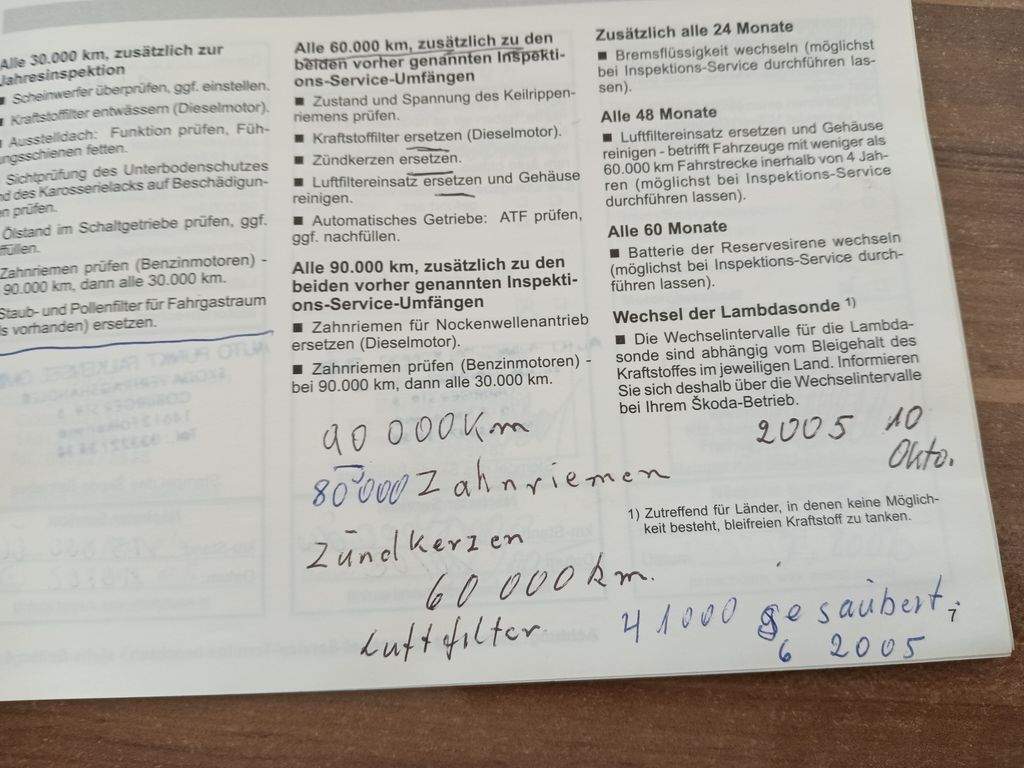 Alle 30.000 km, zusätzlich zur
Jahresinspektion
■ Scheinwerfer überprüfen, ggf. einstellen.
Kraftstoffilter entwässern (Dieselmotor).
Ausstelldach: Funktion prüfen, Füh-
ungsschienen fetten.
Sichtprüfung des Unterbodenschutzes
nd des Karosserielacks auf Beschädigun-
en prüfen.
Ölstand im Schaltgetriebe prüfen, ggf.
füllen.
Zahnriemen prüfen (Benzinmotoren) -
90.000 km, dann alle 30.000 km.
Staub- und Pollenfilter für Fahrgastraum
s vorhanden) ersetzen.
Alle 60.000 km, zusätzlich zu den
beiden vorher genannten Inspekti-
ons-Service-Umfängen
■ Zustand und Spannung des Keilrippen-
riemens prüfen.
■ Kraftstoffilter ersetzen (Dieselmotor).
■ Zündkerzen ersetzen.
■ Luftfiltereinsatz ersetzen und Gehäuse
reinigen.
■ Automatisches Getriebe: ATF prüfen,
ggf. nachfüllen.
Alle 90.000 km, zusätzlich zu den
beiden vorher genannten Inspekti-
ons-Service-Umfängen
■ Zahnriemen für Nockenwellenantrieb
ersetzen (Dieselmotor).
■ Zahnriemen prüfen (Benzinmotoren) -
bei 90.000 km, dann alle 30.000 km.
90 000 Km
80 000 Zahnriemen
Zündkerzen
60 000 km.
Luftfilter
Zusätzlich alle 24 Monate
■ Bremsflüssigkeit wechseln (möglichst
bei Inspektions-Service durchführen las-
sen).
Alle 48 Monate
■ Luftfiltereinsatz ersetzen und Gehäuse
reinigen - betrifft Fahrzeuge mit weniger als
60.000 km Fahrstrecke inerhalb von 4 Jah-
ren (möglichst bei Inspektions-Service
durchführen lassen).
Alle 60 Monate
■ Batterie der Reservesirene wechseln
(möglichst bei Inspektions-Service durch-
führen lassen).
Wechsel der Lambdasonde 1)
■ Die Wechselintervalle für die Lambda-
sonde sind abhängig vom Bleigehalt des
Kraftstoffes im jeweiligen Land. Informieren
Sie sich deshalb über die Wechselintervalle
bei Ihrem Škoda-Betrieb.
2005 10
Okto.
1) Zutreffend für Länder, in denen keine Möglich-
keit besteht, bleifreien Kraftstoff zu tanken.
41000 gesaübert,
6 2005